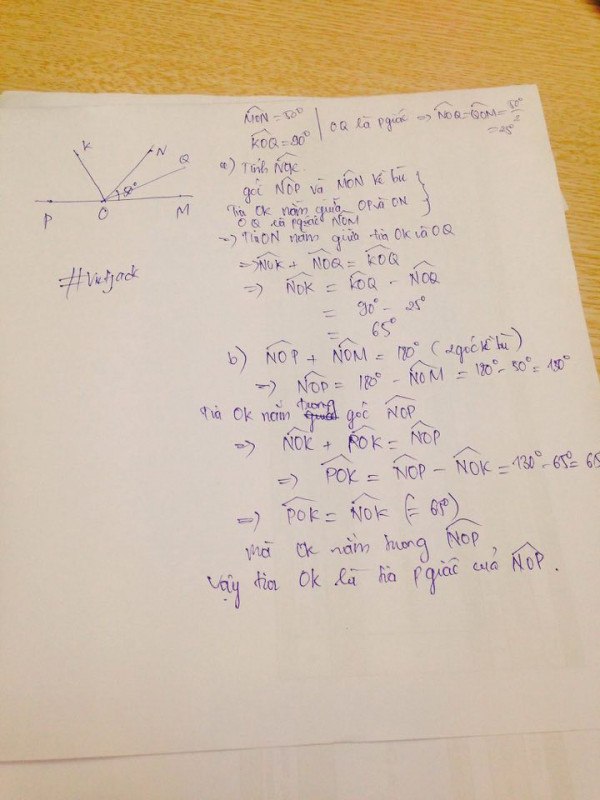 K
N
Q
50°
P
O
M
#Vietjack
M̂ON = 50°
K̂OQ = 90°
OQ là pgiác => N̂OQ = Q̂OM = 50°/2
= 25°
a) Tính N̂OK
góc N̂OP và M̂ON kề bù
Tia OK nằm giữa OP và ON
OQ là pgiác N̂OM
=> Tia ON nằm giữa tia OK và OQ
=> N̂OK + N̂OQ = K̂OQ
=> N̂OK = K̂OQ - N̂OQ
= 90° - 25°
= 65°
b) N̂OP + N̂OM = 180° (2 góc kề bù)
=> N̂OP = 180° - N̂OM = 180° - 50° = 130°
Tia OK nằm trong góc N̂OP
=> N̂OK + P̂OK = N̂OP
=> P̂OK = N̂OP - N̂OK = 130° - 65° = 65
=> P̂OK = N̂OK (= 65°)
mà OK nằm trong N̂OP
Vậy tia OK là tia pgiác của N̂OP.